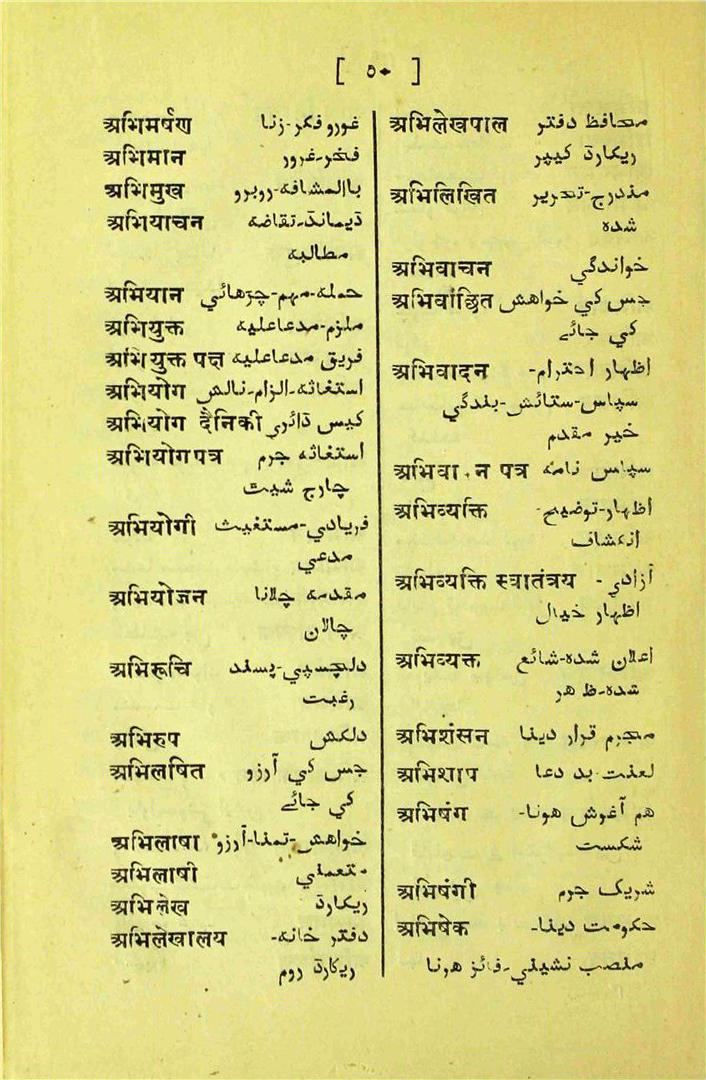 [ ۵۰ ]
अभिमर्षण غورو فکر-زنا
अभिमान فخر-غرور
अभिमुख باالمشافہ-روبرو
अभियाचन ڈیمانڈ-تقاضہ
مطالبہ
अभियान حملہ-مہم-چڑھائي
अभियुक्त ملزم-مدعاعلیہ
अभियुक्त पक्ष فریق مدعاعلیہ
अभियोग استغاثہ-الزام-نالش
अभियोग दैनिकी کیس ڈائري
अभियोगपत्र استغاثہ جرم
چارج شیٹ
अभियोगी فریادي-مستغیث
مدعي
अभियोजन مقدمہ چلانا
چالان
अभिरूचि دلچسپي-پسند
رغبت
अभिरुप دلکش
अभिलषित جس کي آرزو
کي جائے
अभिलाषा خواهش-تمنا-آرزو
अभिलाषी متمني
अभिलेख ریکارڈ
अभिलेखालय دفتر خانہ-
ریکارڈ روم
अभिलेखपाल محافظ دفتر
ریکارڈ کیپر
अभिलिखित مندرج-تحریر
شدہ
अभिवाचन خواندگي
अभिवांछित جس کي خواهش
کي جائے
अभिवादन اظہار احترام-
سپاس-ستائش-بندگي
خیر مقدم
अभिवा न पत्र سپاس نامہ
अभिव्यक्ति اظہار-توضیح-
انکشاف
अभिव्यक्ति स्वातंत्रय آزادي-
اظہار خیال
अभिव्यक्त اعلان شدہ-شائع
شدہ-ظاهر
अभिशंसन مجرم قرار دینا
अभिशाप لعنت-بد دعا
अभिषंग هم آغوش هونا-
شکست
अभिषंगी شریک جرم
अभिषेक حکومت دینا-
منصب نشیني-فائز هونا